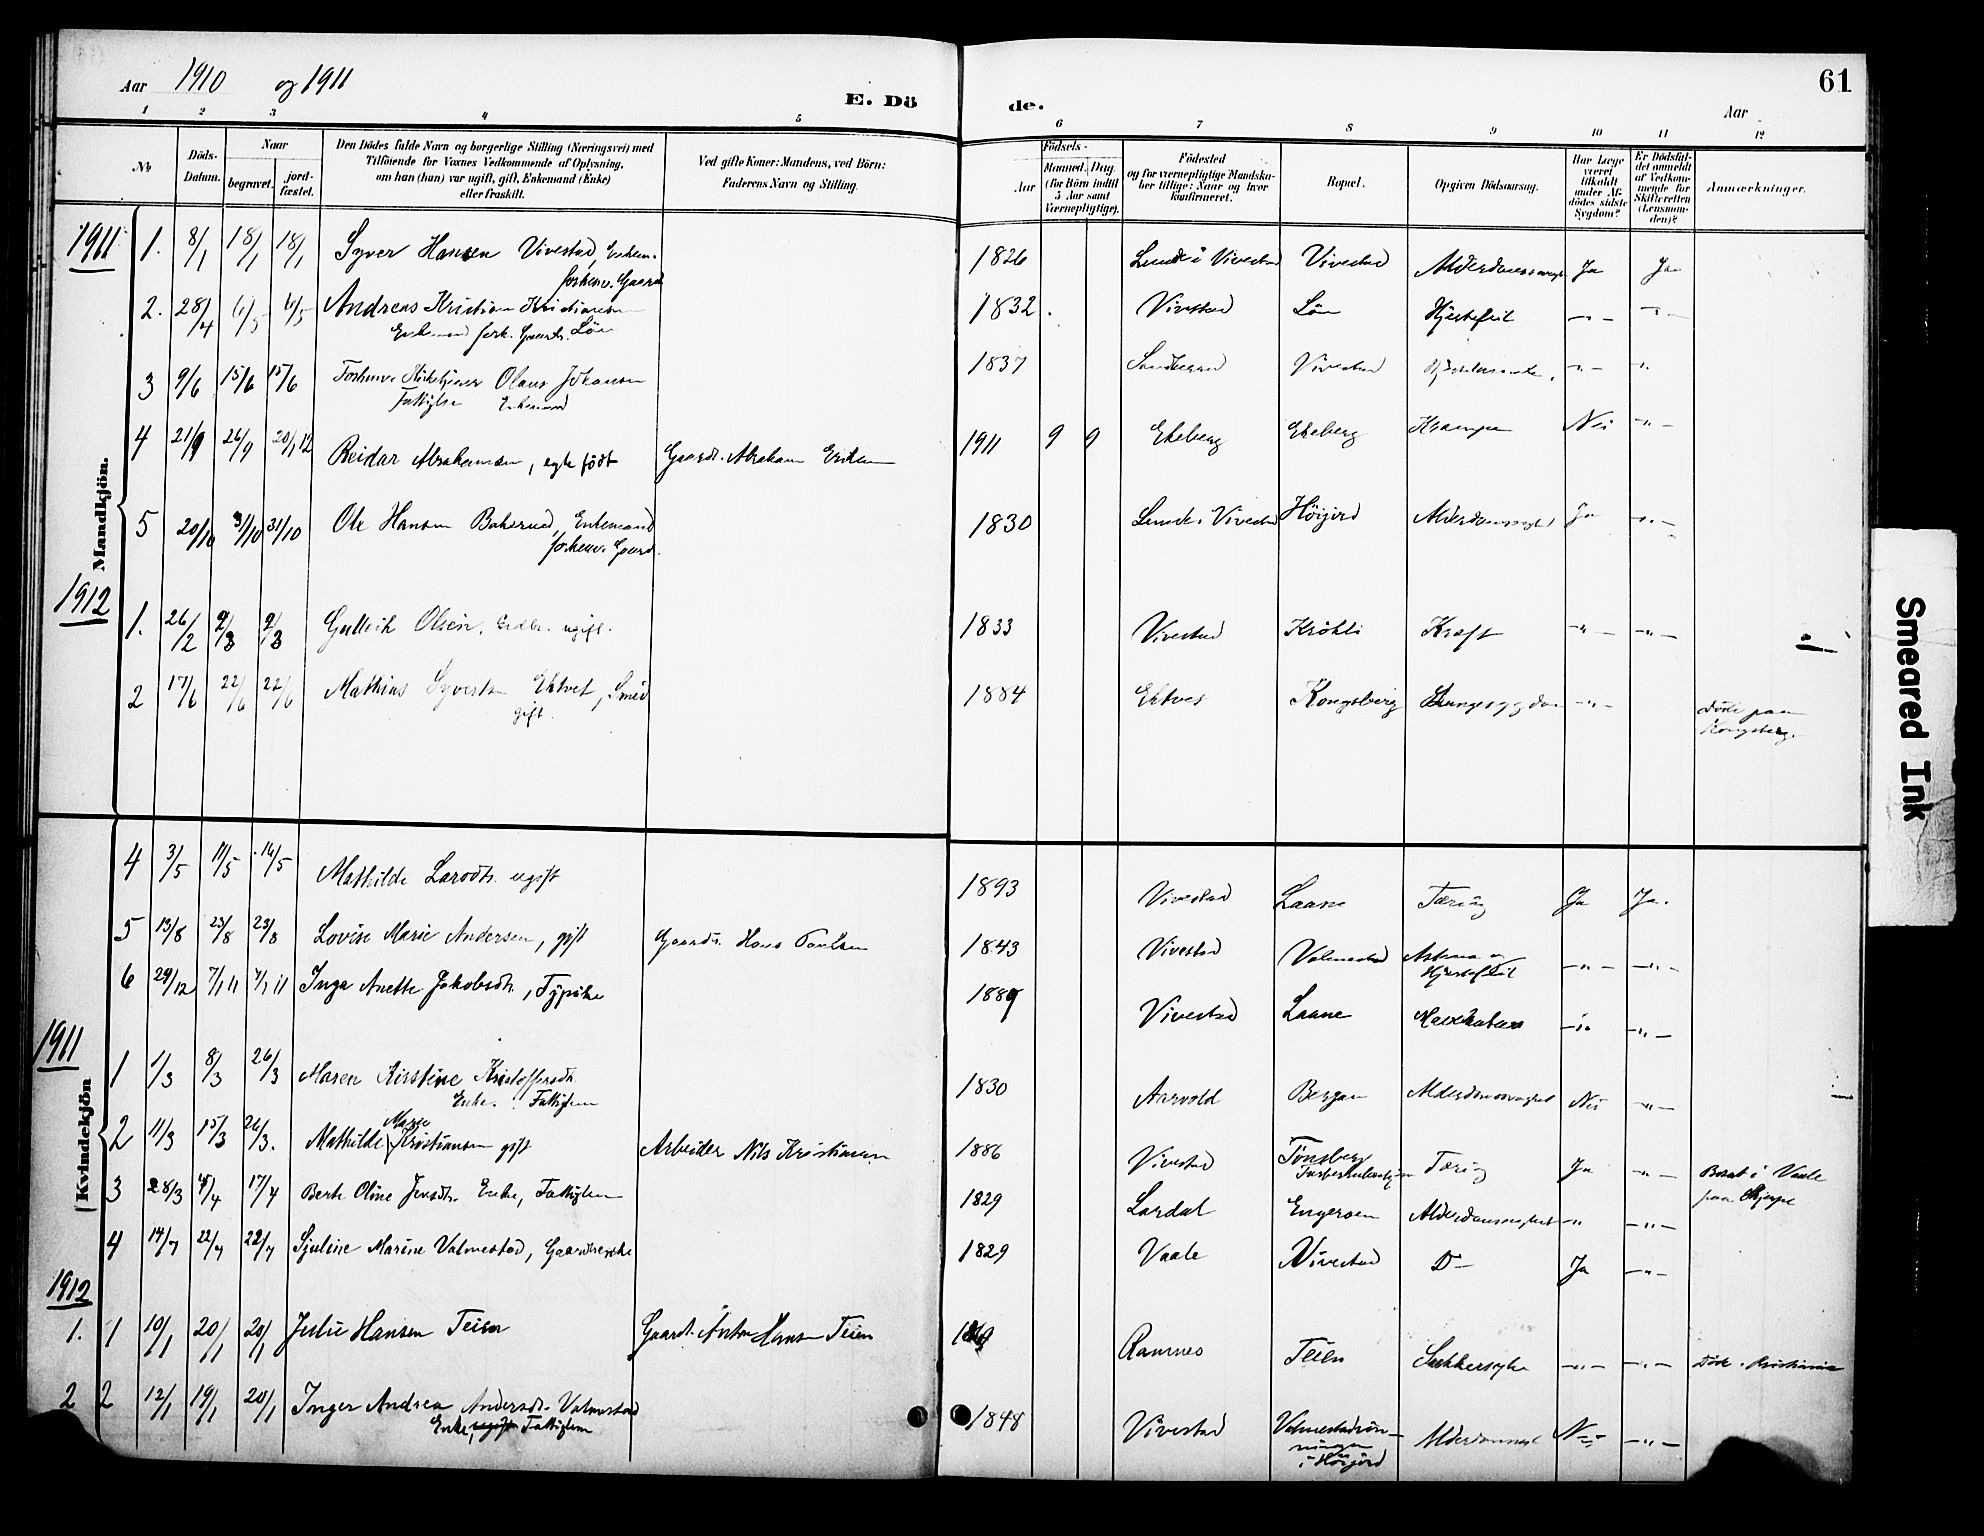 Aar 1910 og 1911
E. Dö
de.
Aar
61
1 2 3 4 5 6 7 8 9 10 11 12
No.
Döds-Datum.
Naar
begravet.
jord-fæstet.
Den Dödes fulde Navn og borgerlige Stilling (Næringsvei) med
Tilföiende for Voxnes Vedkommende af Oplysning,
om han (hun) var ugift, gift, Enkemand (Enke)
eller fraskilt.
Ved gifte Koner: Mandens, ved Börn:
Faderens Navn og Stilling.
Födsels-
Aar
Maaned. Dag.
(for Börn indtil
5 Aar samt
Værnepligtige).
Födested
og for værnepligtige Mandska-
ber tillige: Naar og hvor
konfirmeret.
Bopæl.
Opgiven Dödsaarsag.
Har Læge
været
tilkaldt
under Af-
dödes sidste
Sygdom?
Er Dödsfal-
det anmeldt
af Vedkom-
mende for
Skifteretten
(Lensman-
den)?
Anmærkninger.
Mandkjön.
1911
1. 8/1 18/1 18/1 Syver Hansen Vivestad, Enkem. 1826 Lunde i Vivestad Vivestad Alderdomssvagh Ja Ja
forhenv. Gaard
2. 28/4 6/5 6/5 Andreas Kristian Kristiansen 1832. Vivestad Lön Hjertefeil -"- -"-
Enkemand forh. Gaardb. Lön
3 9/6 15/6 15/6 Forhenv. Kirketjener Olaus Johansen 1837 Vivestad -"- -"-
Fattiglem Enkemand
4 21/9 26/9 20/12 Reidar Abrahamsen, egte födt Gaardb. Abraham Eriksen 1911 9 9 Ekeberg Ekeberg Krampe Nei -"-
5 20/10 31/10 31/10 Ole Hansen Bakerud, Enkemand 1830 Lunde i Vivestad Höijord Alderdomssvaghed Ja -"-
forhenv. Gaard.
1912
1. 26/2 9/3 9/3 Gullik Olsen, ugift. 1833 Vivestad Kröhli Kræft -"- -"-
2 17/6 22/6 22/6 Mathias Syvertsen Ektvet, Smed 1884 Ektvet Kongsberg Lungesygdom -"- Döde paa
gift. Kongsberg.
Kvindekjön
4 3/5 11/5 14/5 Mathilde Larsdtr. ugift 1893 Vivestad Laane Tæring Ja Ja.
5 13/8 23/8 23/8 Lovise Marie Andersen, gift Gaardb. Hans Paulsen 1843 Vivestad Valmestad Astma og -"- -"-
Hjertefeil
6 29/12 7/1 11 7/1 11 Inga Anette Jakobsdtr., Typike 1889 Vivestad Laane -"- -"-
1911
1 1/3 8/3 26/3 Maren Kirstine Kristoffersdtr. 1830 Aarvold Bergan Alderdomssvaghed Nei -"-
Enke. Fattiglem
2 11/3 15/3 26/3. Mathilde Marie Kristiansen gift Arbeider Nils Kristiansen 1886 Vivestad Tönsberg Tæring Ja -"- Bosat i Vaale
Tuberkulosehjem paa
3 28/3 4/4 17/4 Berte Oline Jensdtr. Enke, Fattiglem 1829 Lardal Engersen Alderdomssvaghed -"- -"-
4 14/7 22/7 22/7 Sjuline Marine Valmestad, Gaardbr.enke 1829 Vaale Vivestad D- Ja -"-
1912
1. 1 10/1 20/1 20/1 Julie Hansen Teien Gaardb. Anton Hansen Teien Ramnes Teien Sukkersyke -"- -"- Döde i Kristiania
2 2 12/1 19/1 20/1 Inger Andrea Andersdtr. Valmestad 1848 Vivestad Valmestadrön- Alderdomssvagh Nei -"-
Enke, ugift Fattiglem ningen
i Höijord
Smeared Ink